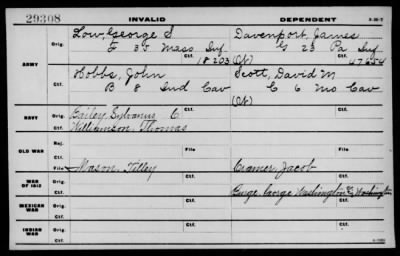 29308
INVALID
DEPENDENT
ARMY
Orig.
Low, George S.
F 35 Mass Inf
Davenport, James
G 23 Pa Inf
Ctf.
18203 (Of)
47654
Orig.
Hobbs, John
B 8 Ind Cav
Scott, David M
C 6 Mo Cav
Ctf.
(Of)
NAVY
Orig.
Bailey, Sylvanus C.
Ctf.
Williamson, Thomas
OLD WAR
Rej.
Ctf.
File
File
WAR OF 1812
File
Mason, Tilley
Cramer, Jacob
Ctf.
George Washington
MEXICAN WAR
Orig.
Ctf.
INDIAN WAR
Orig.
Ctf.